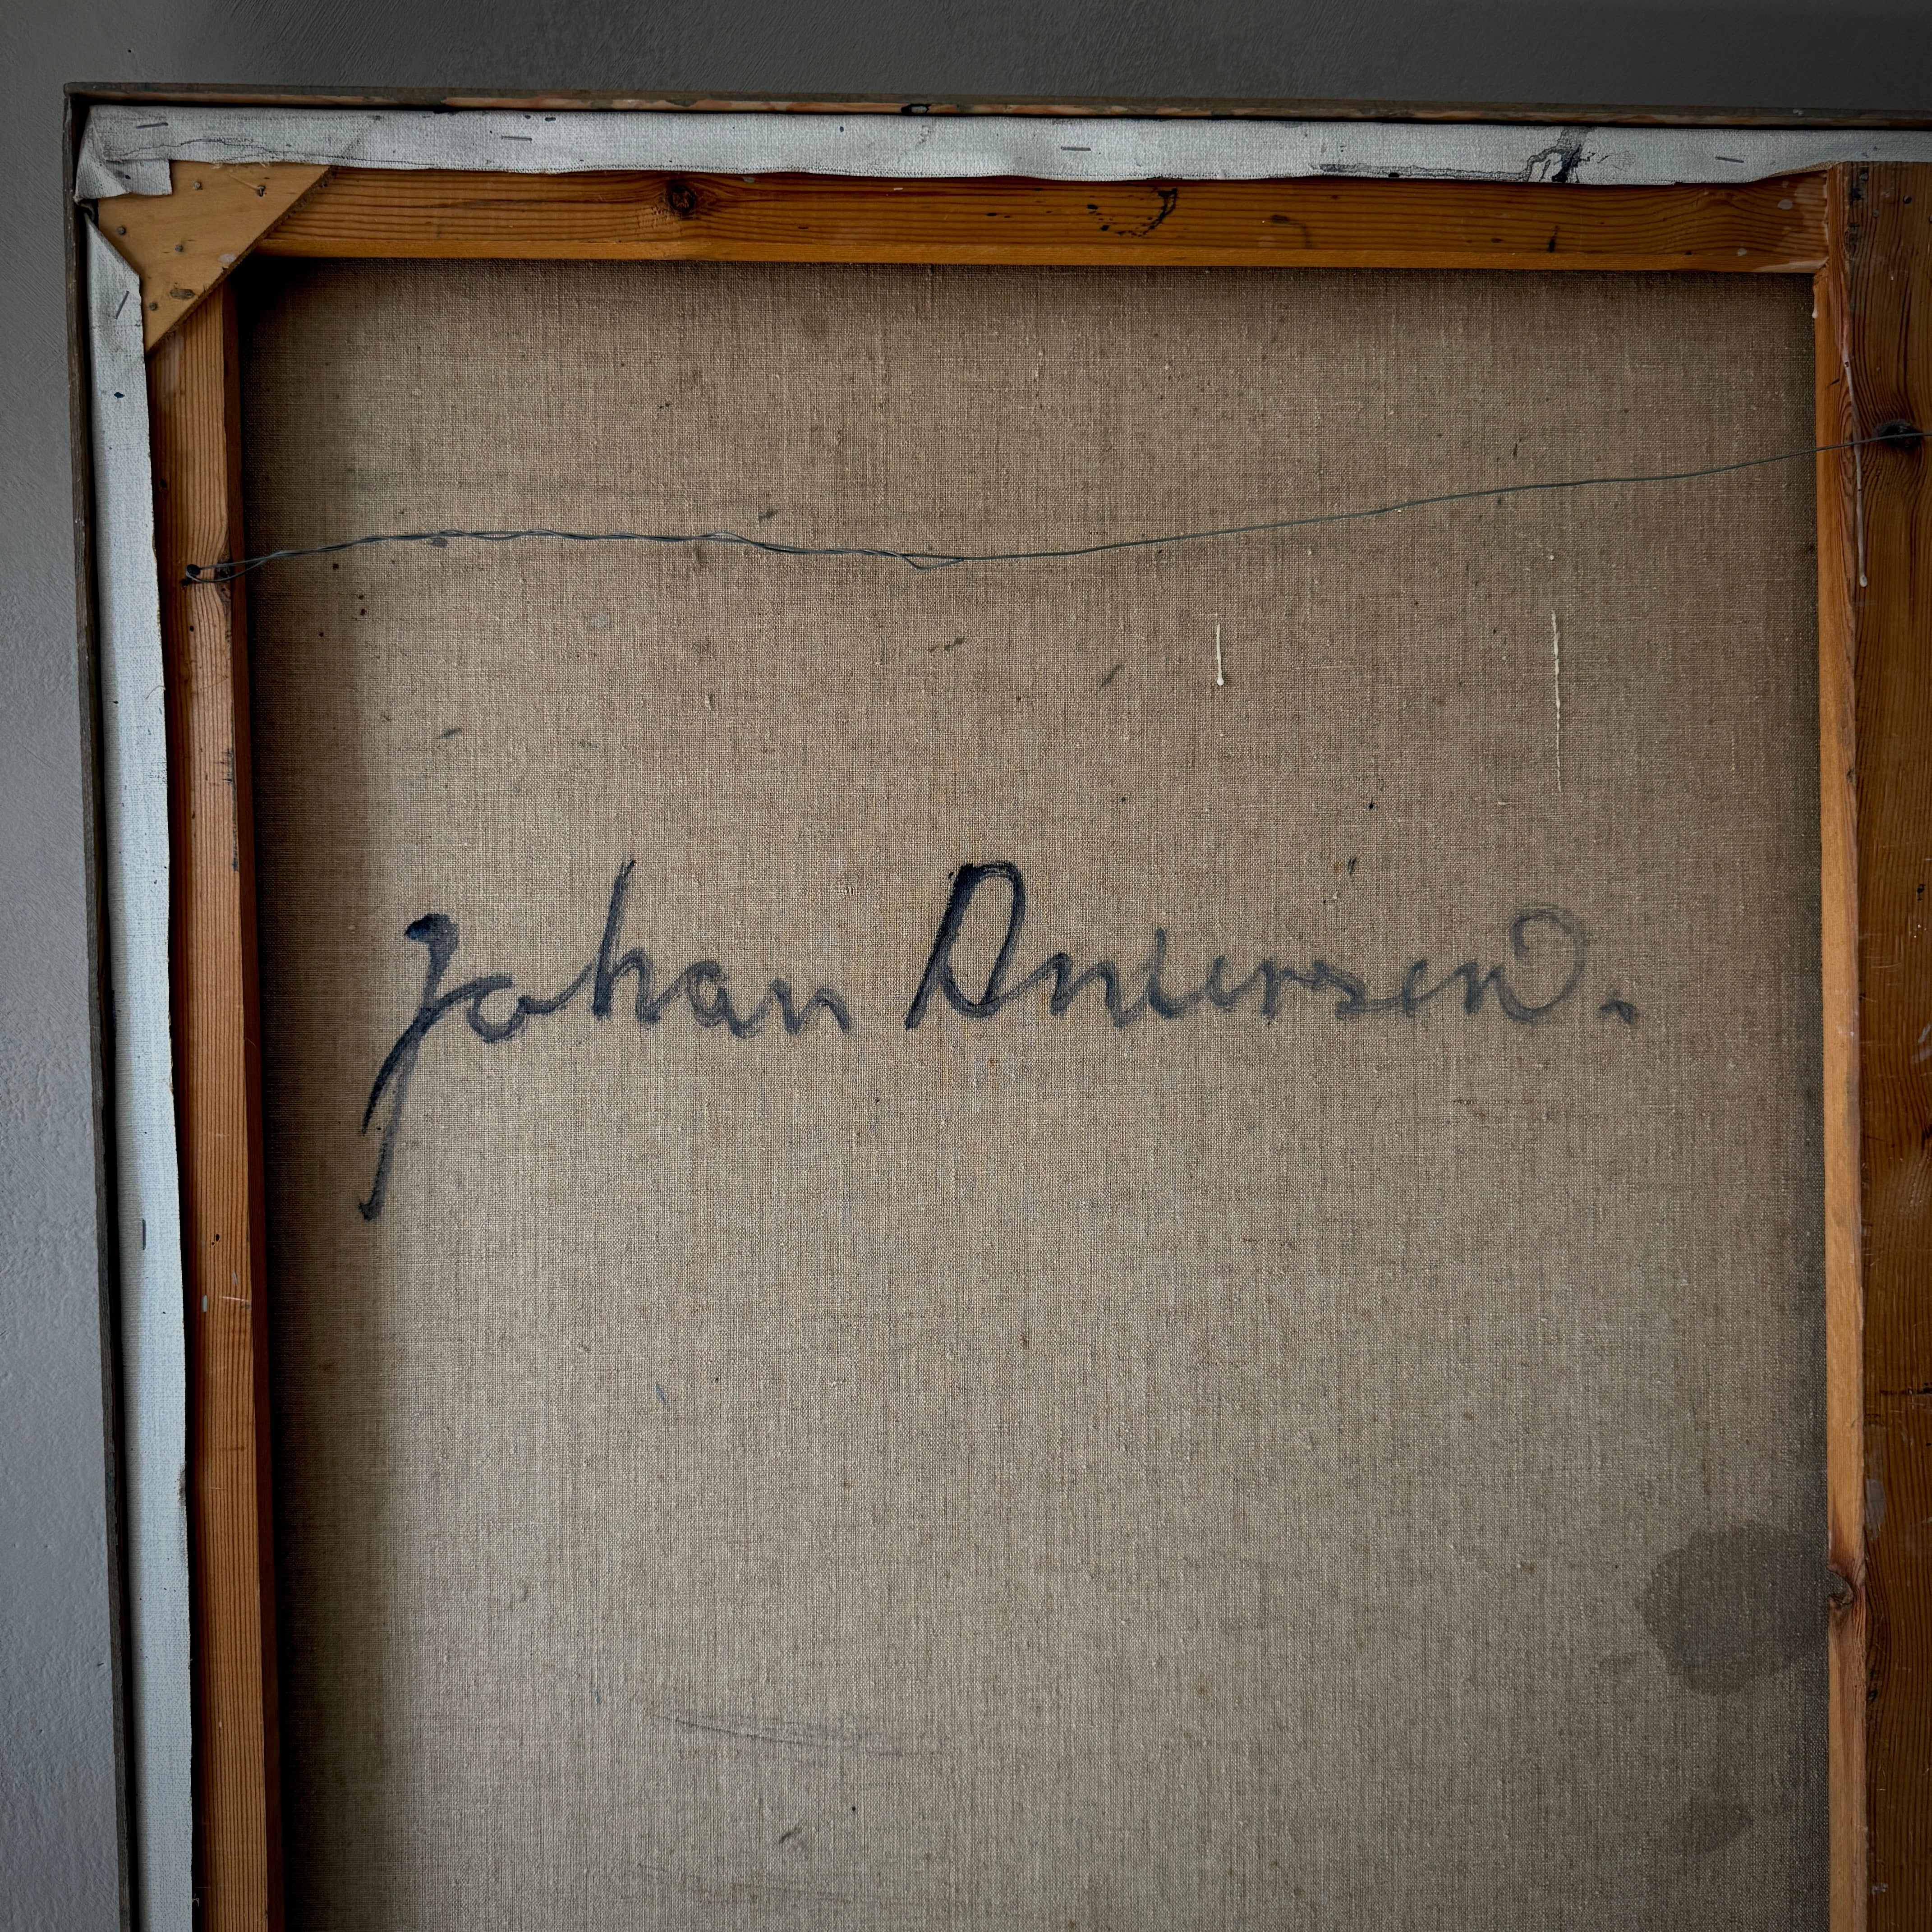 Johan Andersen.